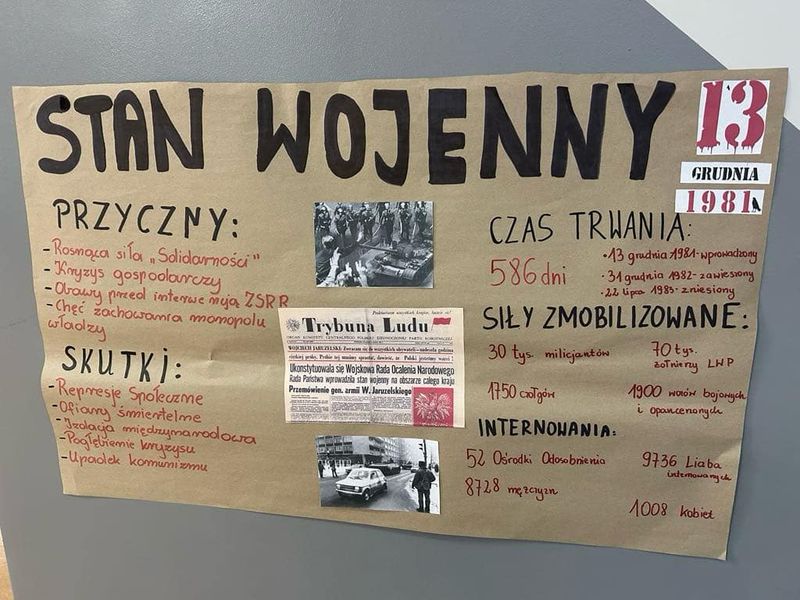 STAN WOJENNY
13
GRUDNIA
1981
PRZYCZNY:
- Rosnąca siła „Solidarności"
- Kryzys gospodarczy
- Obawy przed interwencją ZSRR
- Chęć zachowania monopolu
władzy
SKUTKI:
- Represje Społeczne
- Ofiary śmiertelne
- Izolacja międzynarodowa
- Pogłębienie kryzysu
- Upadek komunizmu
Proletariusze wszystkich krajów, łączcie się!
Trybuna Ludu
ORGAN KOMITETU CENTRALNEGO POLSKIEJ ZJEDNOCZONEJ PARTII ROBOTNICZEJ
WOJCIECH JARUZELSKI: Zwracam się do wszystkich obywateli – nadeszła godzina
ciężkiej próby. Próbie tej musimy sprostać, dowieść, że Polski jesteśmy warci
Ukonstytuowała się Wojskowa Rada Ocalenia Narodowego
Rada Państwa wprowadziła stan wojenny na obszarze całego kraju
Przemówienie gen. armii W. Jaruzelskiego
CZAS TRWANIA:
586 dni
• 13 grudnia 1981 - wprowadzony
• 31 grudnia 1982 - zawieszony
• 22 lipca 1983 - zniesiony
SIŁY ZMOBILIZOWANE:
30 tys. milicjantów
70 tys.
żołnierzy LWP
1750 czołgów
1900 wozów bojowych
i opancerzonych
INTERNOWANIA:
52 Ośrodki Odosobnienia
9736 Liczba
internowanych
8728 mężczyzn
1008 kobiet